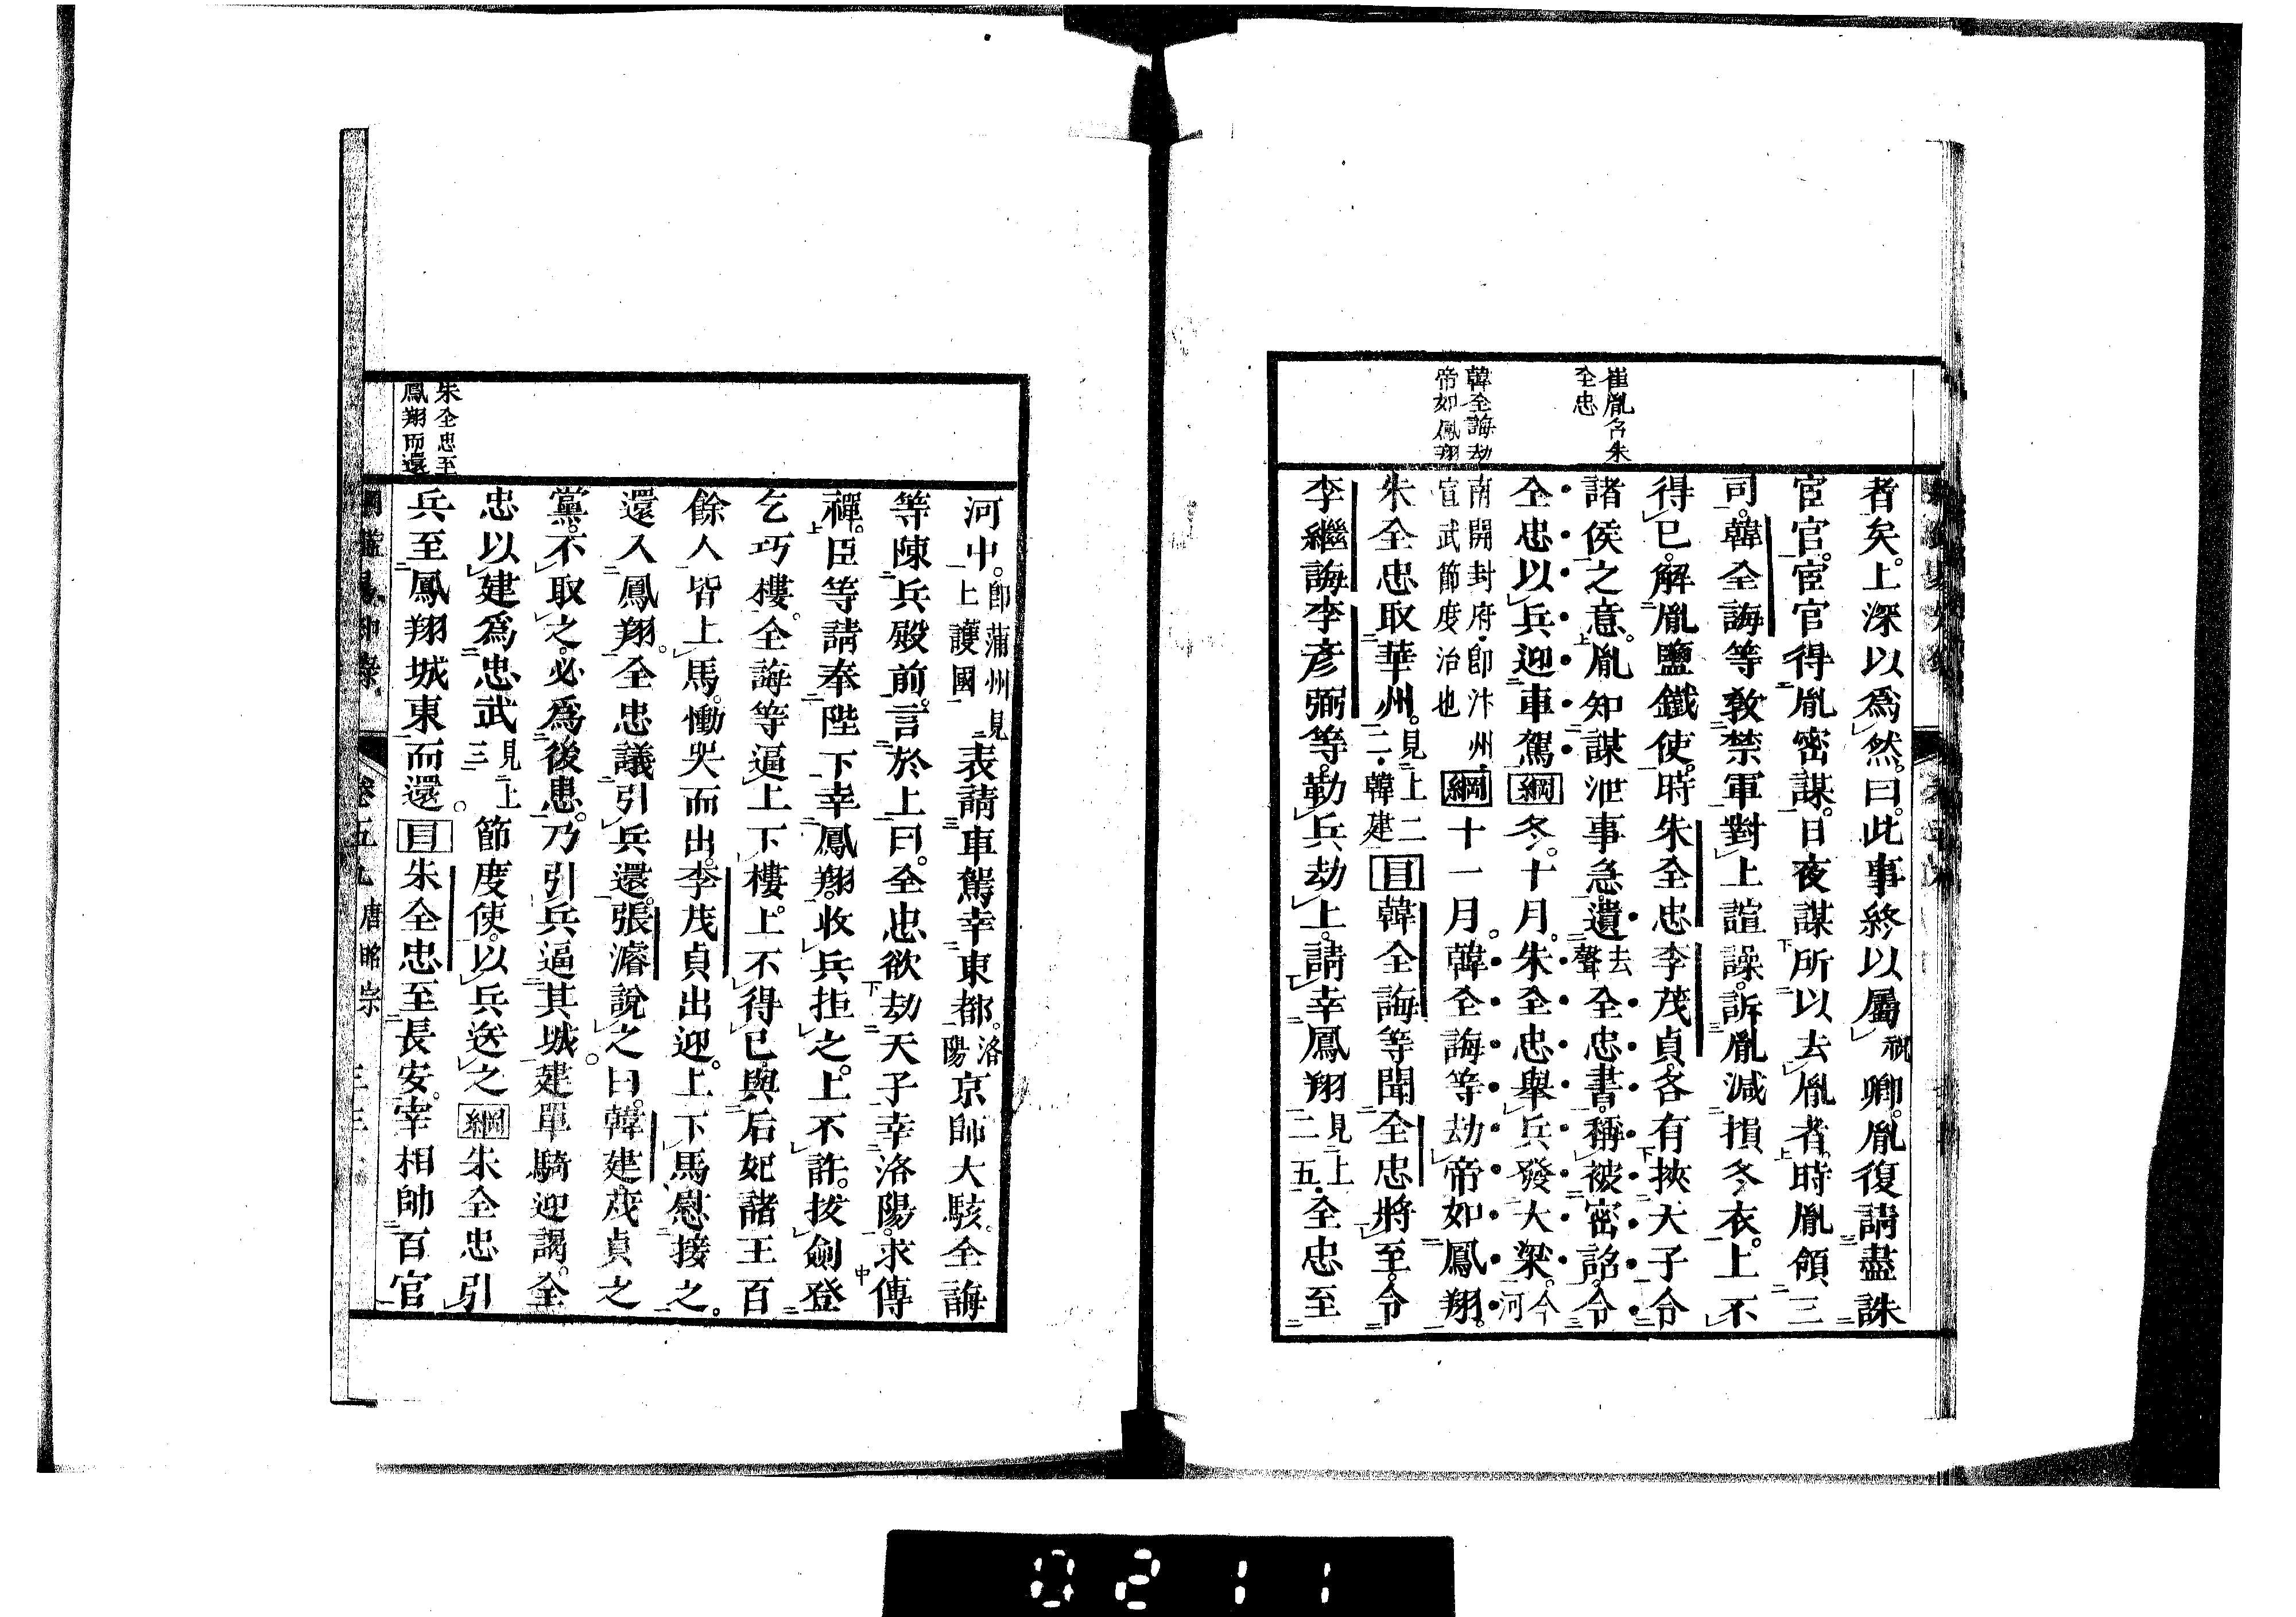 崔胤召朱
全忠
韓全誨劫
帝如鳳翔
者矣。上深以爲然。曰。此事終以屬祝卿。胤復請盡誅
宦官。宦官得胤密謀。日夜謀所以去胤者。時胤領三
司。韓全誨等敎禁軍對上諠譟。訴胤減損冬衣。上不
得已。解胤鹽鐵使。時朱全忠李茂貞。各有挾天子令
諸侯之意。胤知謀泄事急。遺去聲全忠書。稱被密詔。令
全忠以兵迎車駕綱冬。十月。朱全忠舉兵發大梁。今河
南開封府。卽汴州。宣武節度治也綱十一月。韓全誨等劫帝如鳳翔。
朱全忠取華州。見上二二。韓建目韓全誨等聞全忠將至。令
李繼誨李彦弼等。勒兵劫上。請幸鳳翔見上二五。全忠至
河中。卽蒲州見上護國表請車駕幸東都。洛陽京師大駭。全誨
等陳兵殿前。言於上曰。全忠欲劫天子幸洛陽。求傳
禪。臣等請奉陛下幸鳳翔。收兵拒之。上不許。拔劍登
乞巧樓。全誨等逼上下樓。上不得已。與后妃諸王百
餘人皆上馬。慟哭而出。李茂貞出迎。上下馬慰接之。
還入鳳翔。全忠議引兵還。張濬說之曰。韓建茂貞之
黨。不取之。必爲後患。乃引兵逼其城。建單騎迎謁。全
忠以建爲忠武見上三節度使。以兵送之綱朱全忠引
兵至鳳翔城東而還。目朱全忠至長安。宰相帥百官
朱全忠至
鳳翔而還
卷五九 唐昭宗